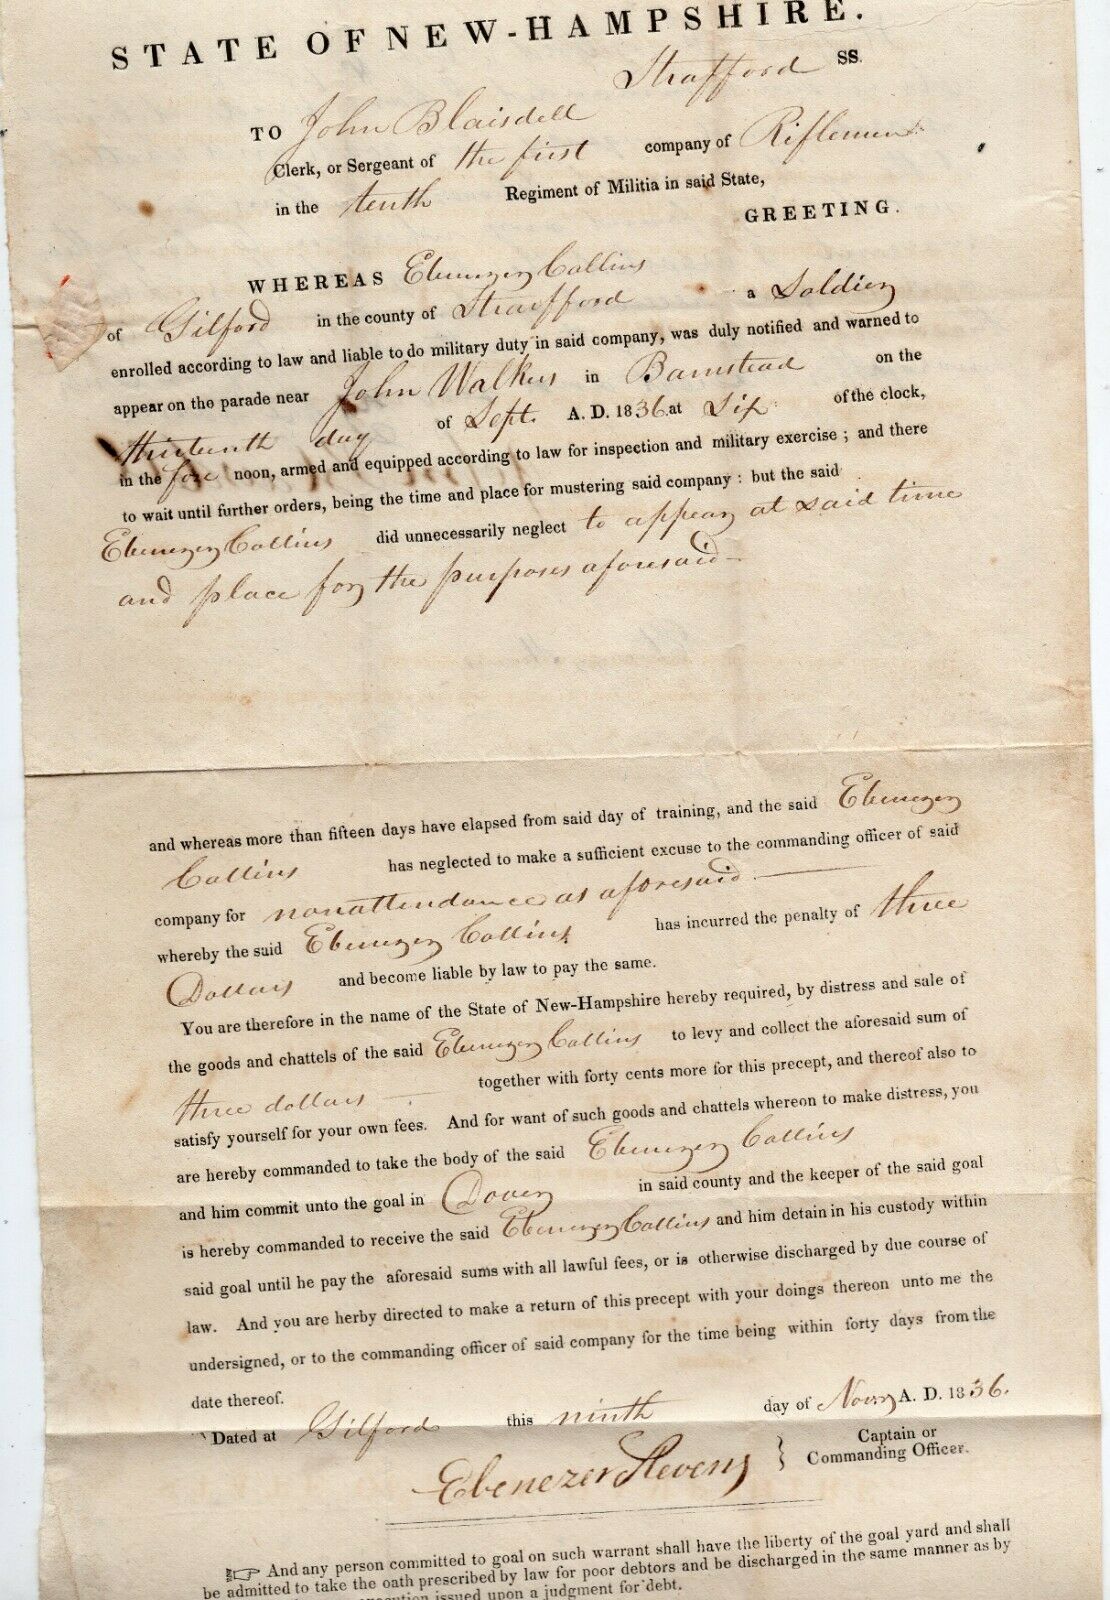 STATE OF NEW-HAMPSHIRE.
Strafford SS.
TO John Blaisdell
Clerk, or Sergeant of the first company of Riflemen
in the tenth Regiment of Militia in said State,
GREETING.
WHEREAS Ebenezer Collins
of Gilford in the county of Strafford a Soldier
enrolled according to law and liable to do military duty in said company, was duly notified and warned to
appear on the parade near John Walkers in Barnstead on the
thirteenth day of Sept. A. D. 1836 at Six of the clock,
in the fore noon, armed and equipped according to law for inspection and military exercise; and there
to wait until further orders, being the time and place for mustering said company: but the said
Ebenezer Collins did unnecessarily neglect to appear at said time
and place for the purposes aforesaid
and whereas more than fifteen days have elapsed from said day of training, and the said Ebenezer
Collins has neglected to make a sufficient excuse to the commanding officer of said
company for nonattendance as aforesaid
whereby the said Ebenezer Collins has incurred the penalty of three
Dollars and become liable by law to pay the same.
You are therefore in the name of the State of New-Hampshire hereby required, by distress and sale of
the goods and chattels of the said Ebenezer Collins to levy and collect the aforesaid sum of
three dollars together with forty cents more for this precept, and thereof also to
satisfy yourself for your own fees. And for want of such goods and chattels whereon to make distress, you
are hereby commanded to take the body of the said Ebenezer Collins
and him commit unto the goal in Dover in said county and the keeper of the said goal
is hereby commanded to receive the said Ebenezer Collins and him detain in his custody within
said goal until he pay the aforesaid sums with all lawful fees, or is otherwise discharged by due course of
law. And you are herby directed to make a return of this precept with your doings thereon unto me the
undersigned, or to the commanding officer of said company for the time being within forty days from the
date thereof.
Dated at Gilford this ninth day of Novr A. D. 1836.
Ebenezer Stevens } Captain or
Commanding Officer.
☞ And any person committed to goal on such warrant shall have the liberty of the goal yard and shall
be admitted to take the oath prescribed by law for poor debtors and be discharged in the same manner as by
execution issued upon a judgment for debt.